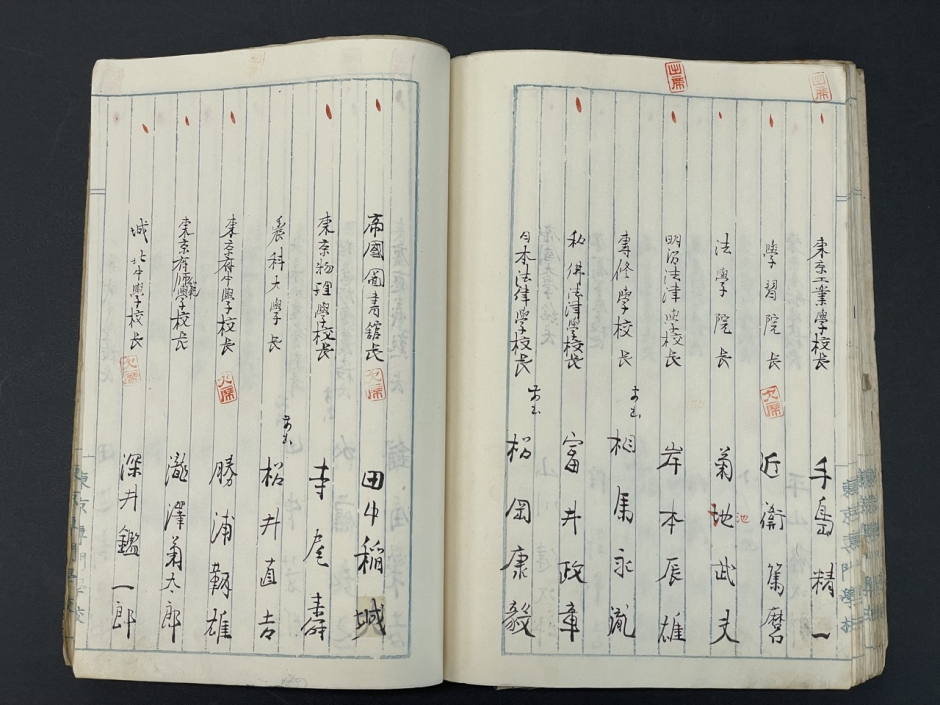 出席
出席
東京工業學校長 手島精一
學習院長 欠席 近衛篤麿
法學院長 菊地武夫
池
明治法律學校長 岸本辰雄
專修學校長 相馬永胤
私立佛法律學校長 富井政章
日本法律學校長 松岡康毅
帝國圖書館長 欠席 田中稲城
東京物理學校長 寺尾壽
農科大學長 松井直吉
東京府中學校長 欠席 勝浦鞆雄
東京府師範學校長 瀧澤菊太郎
城北中學校長 欠席 深井鑑一郎
東京專門學校